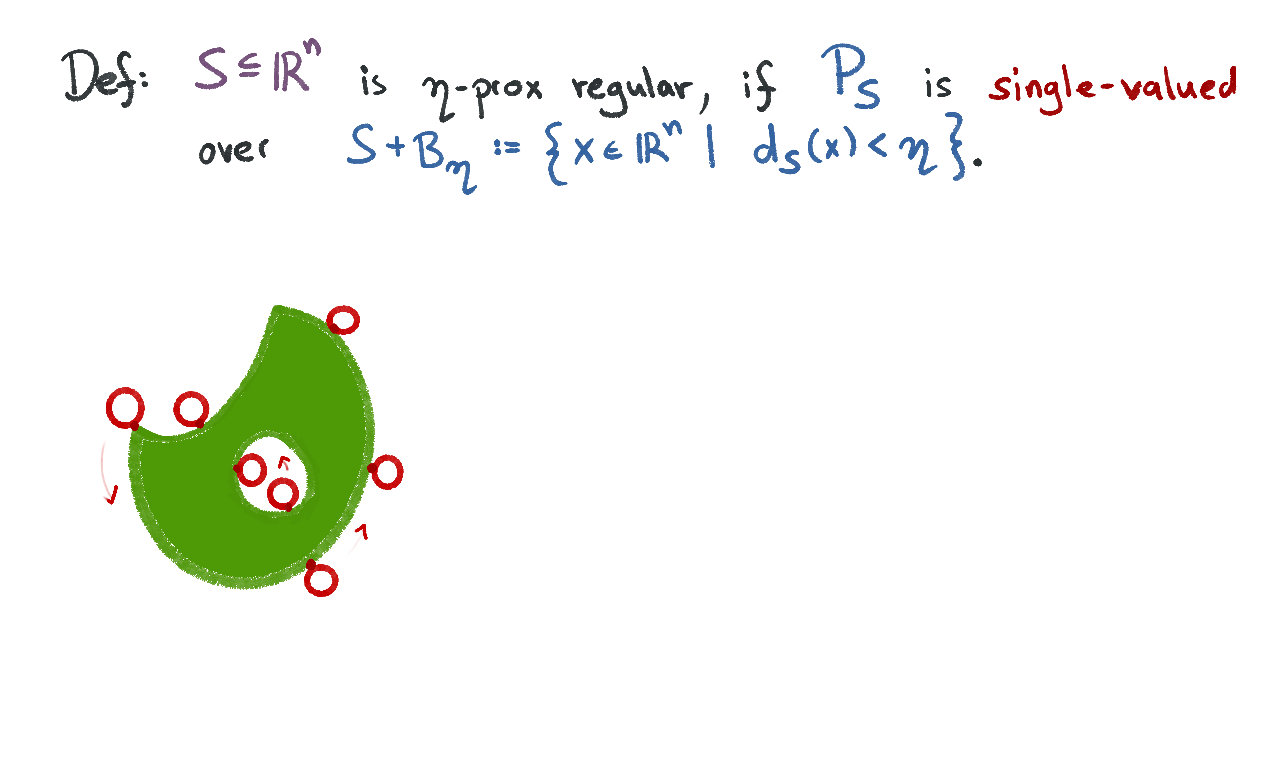 Def: S ⊆ ℝⁿ is η-prox regular, if P_S is single-valued
over S + B_η := { x ∈ ℝⁿ | d_S(x) < η }.